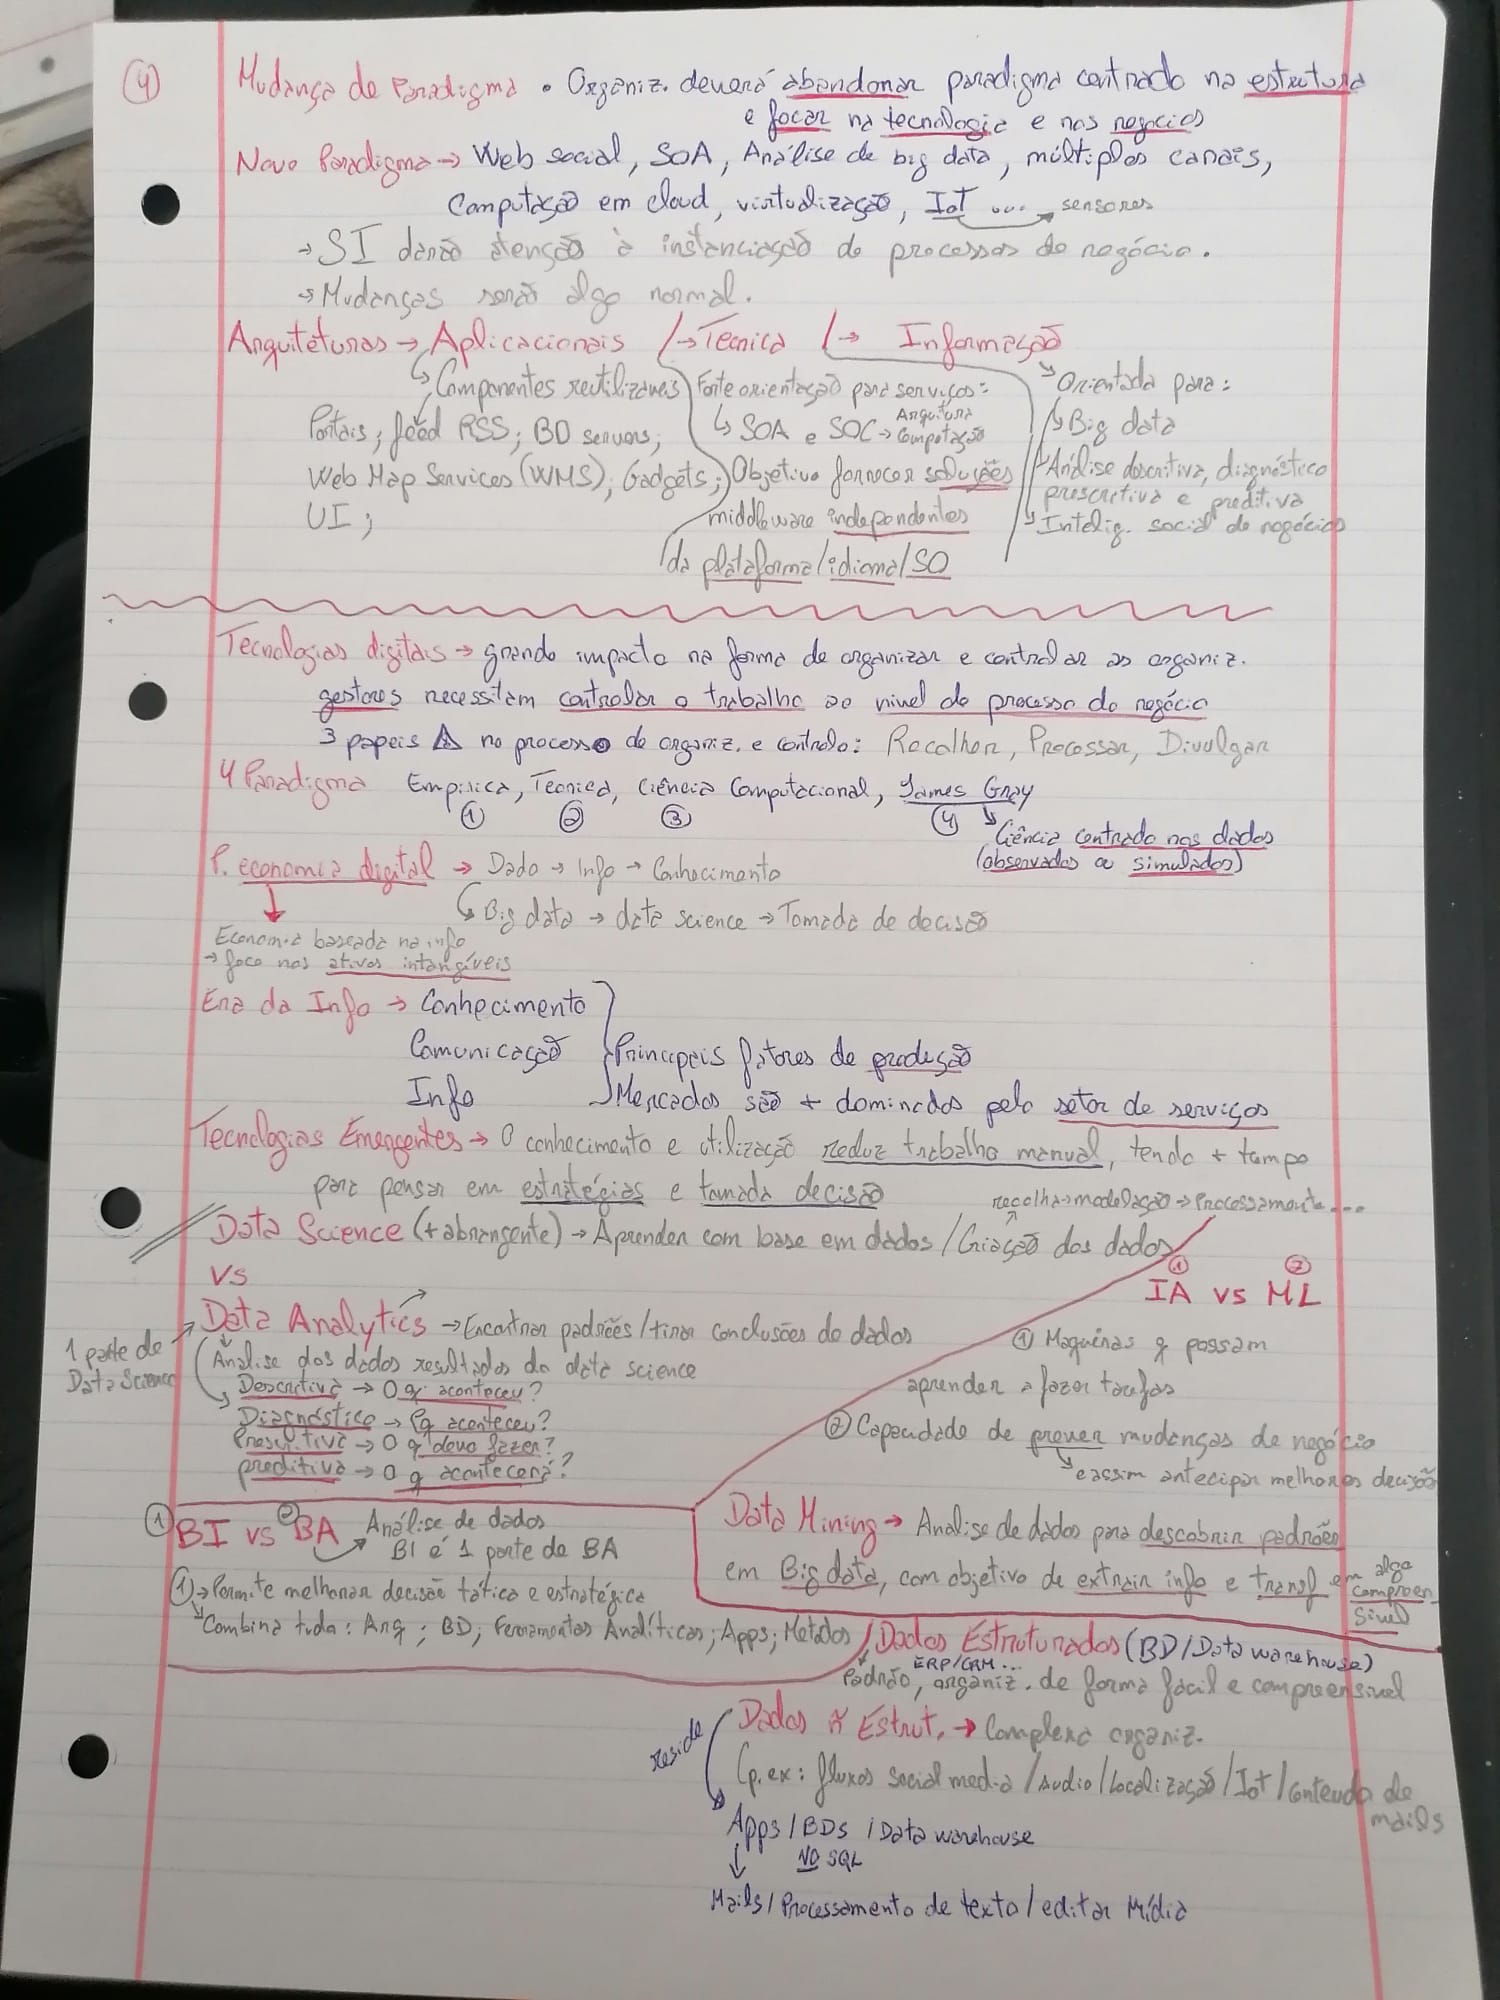 4
Mudança de Paradigma • Organiz. deverá abandonar paradigma centrado na estrutura
e focar na tecnologia e nos negócios
Novo Paradigma → Web social, SOA, Análise de big data, múltiplos canais,
Computação em cloud, virtualização, IoT ... → sensores
→ SI darão atenção à instanciação de processos de negócio.
→ Mudanças serão algo normal.
Arquiteturas → Aplicacionais /→ Tecnica /→ Informação
↳ Componentes reutilizaveis
Portais; feed RSS; BD servers;
Web Map Services (WMS); Gadgets;
UI;
Forte orientação para serviços:
↳ SOA e SOC → Arquitura Computação
Objetivo fornecer soluções
middleware independentes
da plataforma/idioma/SO
Orientada para:
Big data
Análise descritiva, diagnóstico
prescritiva e preditiva
Intelig. social de negócios
Tecnologias digitais → grande impacto na forma de organizar e controlar as organiz.
gestores necessitam controlar o trabalho ao nível do processo do negócio
3 papeis no processo de organiz. e controlo: Recolher, Processar, Divulgar
4 Paradigma Empírica, Teorica, Ciência Computacional, James Gray
① ② ③ ④
Ciência centrado nos dados
(observados ou simulados)
P. economia digital → Dado → Info → Conhecimento
↳ Big data → data science → Tomada de decisão
Economia baseada na info
→ foco nos ativos intangíveis
Era da Info → Conhecimento
Comunicação } Principais fatores de produção
Info Mercados são + dominados pelo setor de serviços
Tecnologias Emergentes → O conhecimento e utilização reduz trabalho manual, tendo + tempo
para pensar em estratégias e tomada decisão
recolha → modelação → Processamento...
Data Science (+ abrangente) → Aprender com base em dados / Criação dos dados
VS
Data Analytics → Encontrar padrões/tirar conclusões de dados
1 parte de
Data Science
Análise dos dados resultados da data science
Descritiva → O q aconteceu?
Diagnóstico → Pq aconteceu?
Prescritiva → O q devo fazer?
preditiva → O q acontecerá?
① ②
IA vs ML
① Maquinas q possam
aprender a fazer tarefas
② Capacidade de prever mudanças de negócio
↳ e assim antecipar melhores decisão
① BI vs ② BA → Análise de dados
BI é 1 parte de BA
① → Permite melhorar decisão tática e estratégica
Combina tudo: Arq; BD; Ferramentas Analíticas; Apps; Metodos
Data Mining → Analise de dados para descobrir padrões
em Big data, com objetivo de extrair info e transf em algo
compreen
sivel
Dados Estruturados (BD/Data warehouse)
ERP/CRM ...
Padrão, organiz. de forma fácil e compreensivel
Dados ñ Estrut. → Complexa organiz.
(p.ex: fluxos social media/Audio/Localização/IoT/Conteudo de
mails
reside
Apps/BDs /Data warehouse
NO SQL
Mails/Processamento de texto/editar Mídia